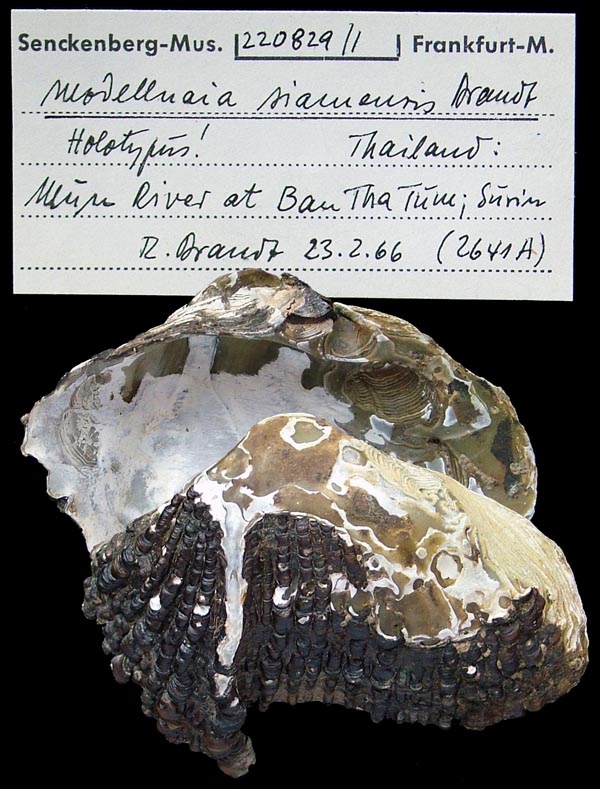 Senckenberg-Mus. 220829/1 Frankfurt-M.
Modellnaia siamensis Brandt
Holotypus! Thailand:
Mun River at Ban Tha Tum; Surin
R. Brandt 23.2.66 (2641A)